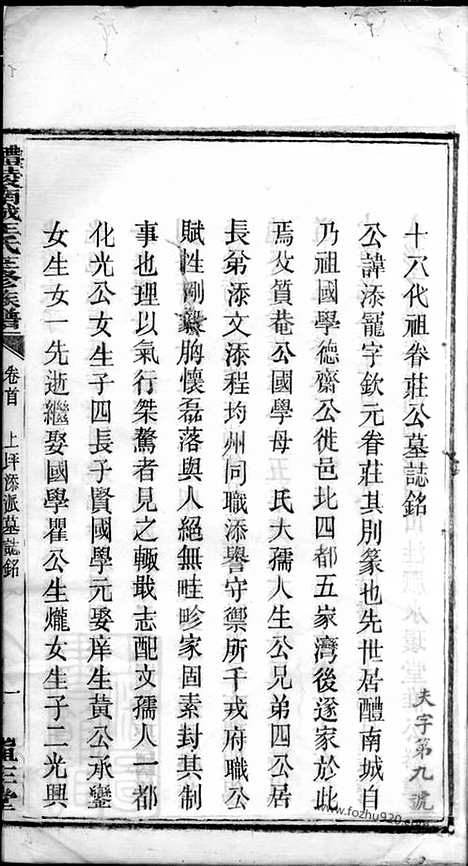 十八代祖眷莊公墓誌銘
公諱添寵字欽元眷莊其別篆也先世居醴南城自
乃祖國學德齋公徙邑北四都五家灣後遂家於此
焉父質菴公國學母 氏大孺人生公兄弟四公居
長弟添文添程均州同職添譽守禦所千戎府職公
賦性剛毅胸懷磊落與人絕無畦畛家固素封其制
事也理以氣行桀驁者見之輙戢志配文孺人一都
化光公女生子四長子賢國學元娶庠生黃公承鑾
女生女一先逝繼娶國學瞿公生爖女生子二光興
夫字第九號
醴陵南城王氏三修族譜
卷首 上坪添派墓誌銘
一
堂
www.fozhu920.com